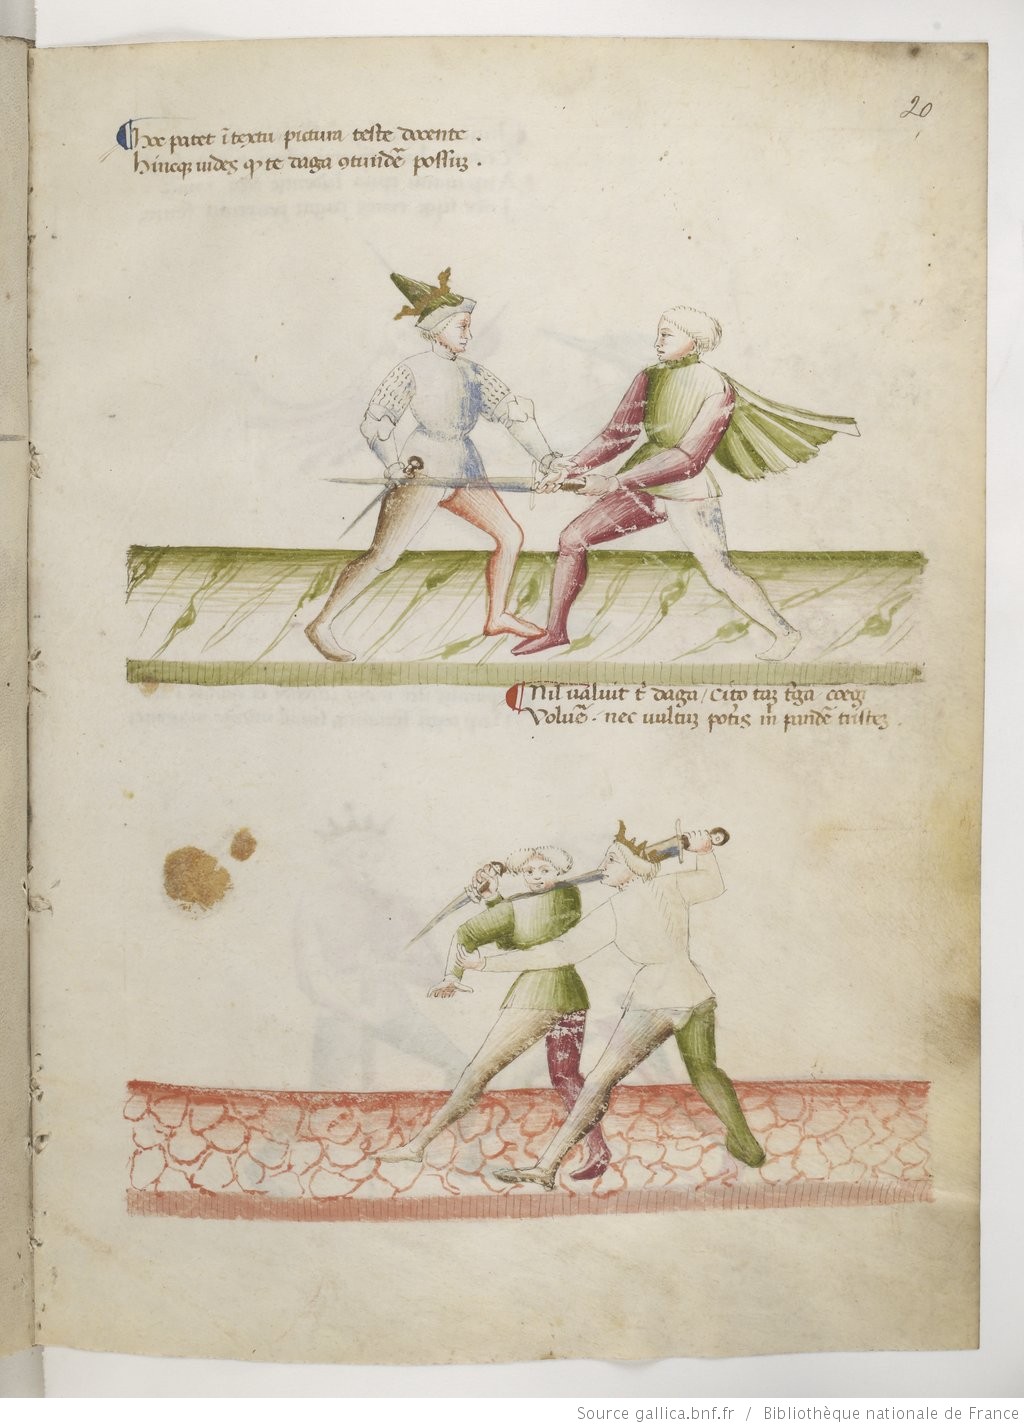 20
Hoc patet ī textu pictura teste docente .
Hincq₃ uides qͥ te daga ꝯtundē possuꝫ .
Nil ualuit t̄ daga / cito taꝫ t̄ga coegi
Voluē . nec uultuꝫ potis m̄ pandē tristeꝫ .
Source gallica.bnf.fr / Bibliothèque nationale de France